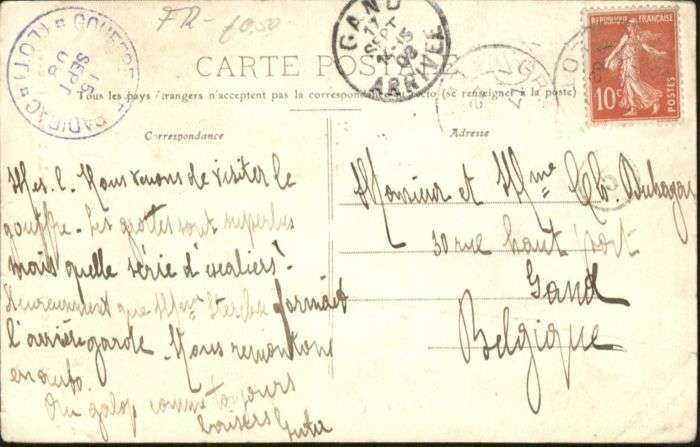 FR- 10.50
GOUFFRE DE PADIRAC (LOT)
15 SEPT 08
GAND
17
SEPT
14-15
08
ARRIVÉE
REPUBLIQUE FRANÇAISE
10c
POSTES
CARTE POSTALE
Tous les pays étrangers n'acceptent pas la correspondance au recto (se renseigner à la poste)
Correspondance
Adresse
Nous venons de visiter le
gouffre. Les grottes sont superbes
mais quelle série d'escaliers!
Heureusement que Mme formait
l'arrière garde. Nous remontons
en auto.
Au galop comme toujours
bousers
Monsieur et Mme Ch.
30 rue haut port
Gand
Belgique
5